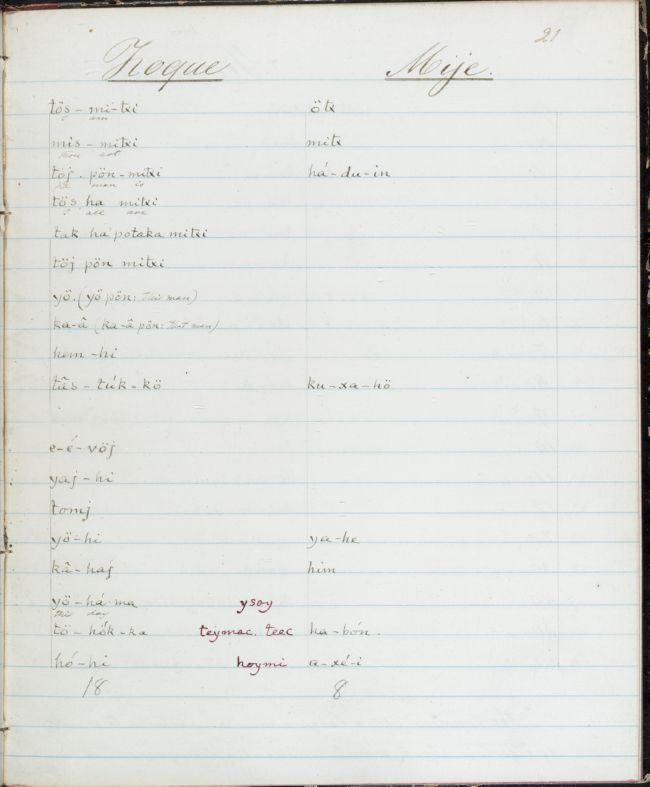 21
Zoque Mije.
tös - mi-txi ötx
am
mis - mitxi mitx
thou art
töj. pön - mitxi há-du-in
he man is
tös ha mitxi
I all are
tak ha potaka mitxi
töj pön mitxi
yö. (yö pön: this man)
ka-â (ka-â pön: that man)
hem-hi
tâs - túk-kö ku-xa-hö
e-é-vöj
yaj-hi
tomj
yö-hi ya-he
kâ-haj him
yö-há-ma ysoy
this day
tö-hók-ka teymac. teec ha-bón.
hó-hi hoymi a-xé-i
18 8